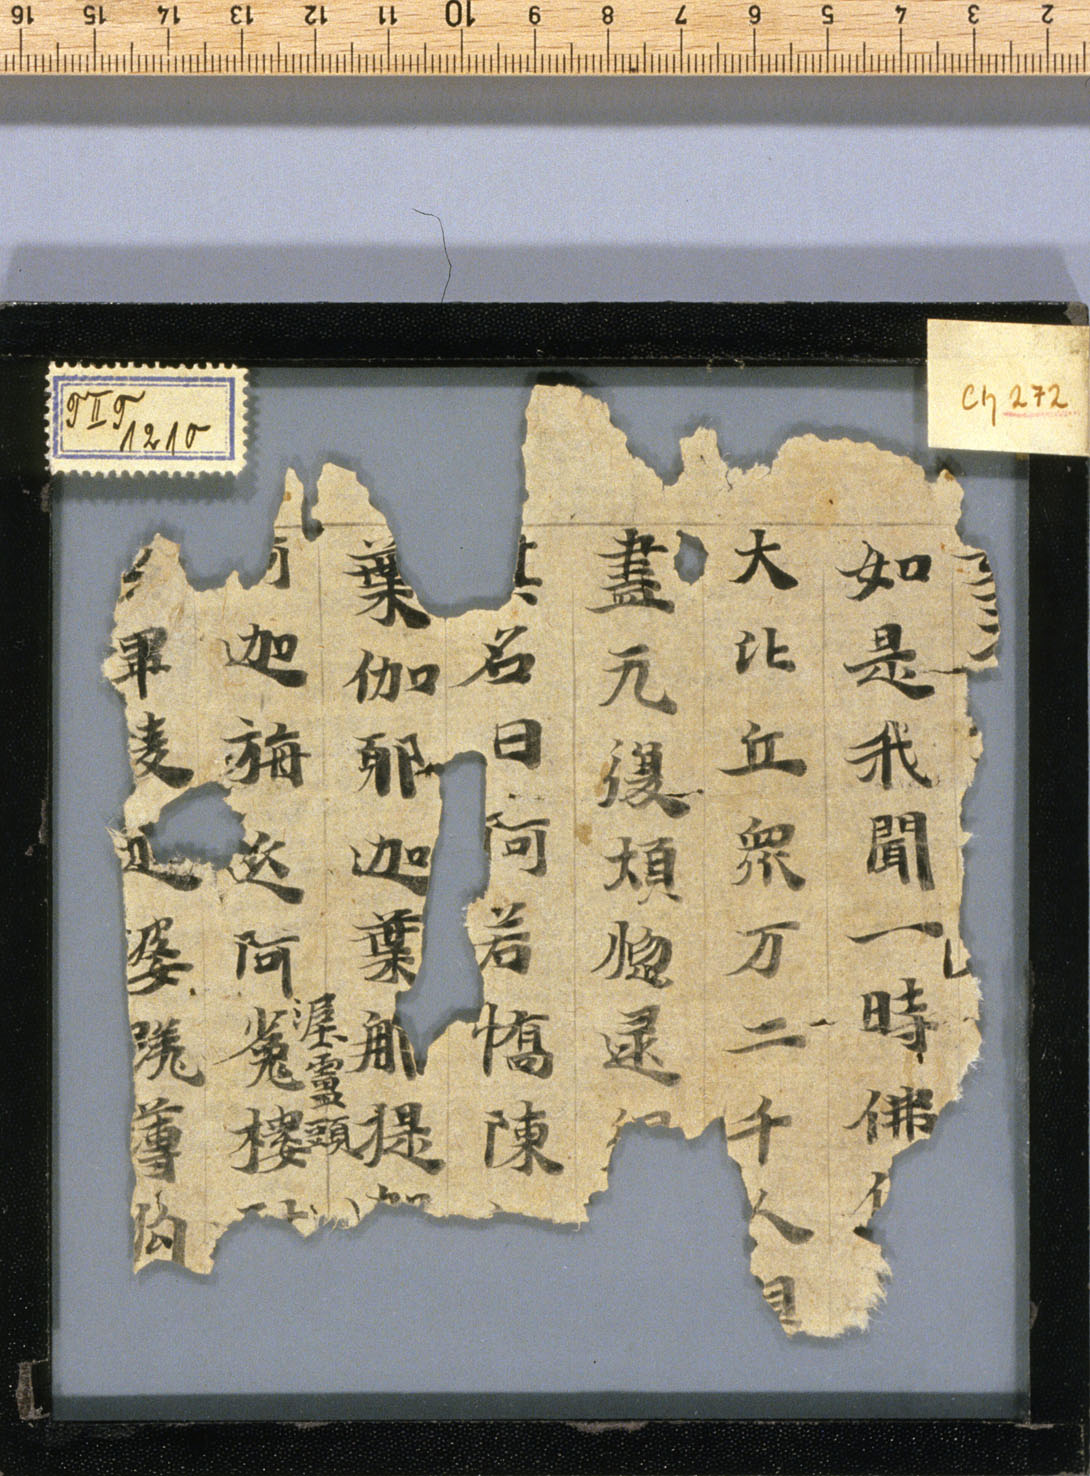 16 15 14 13 12 11 10 9 8 7 6 5 4 3 2
T II T
1210
Ch 272
如是我聞一時佛
大比丘衆万二千人
盡无復煩惱逮
名曰阿若憍陳
葉伽耶迦葉那提迦
迦旃延阿㝹樓
頭
畢
迦婆蹉薄拘